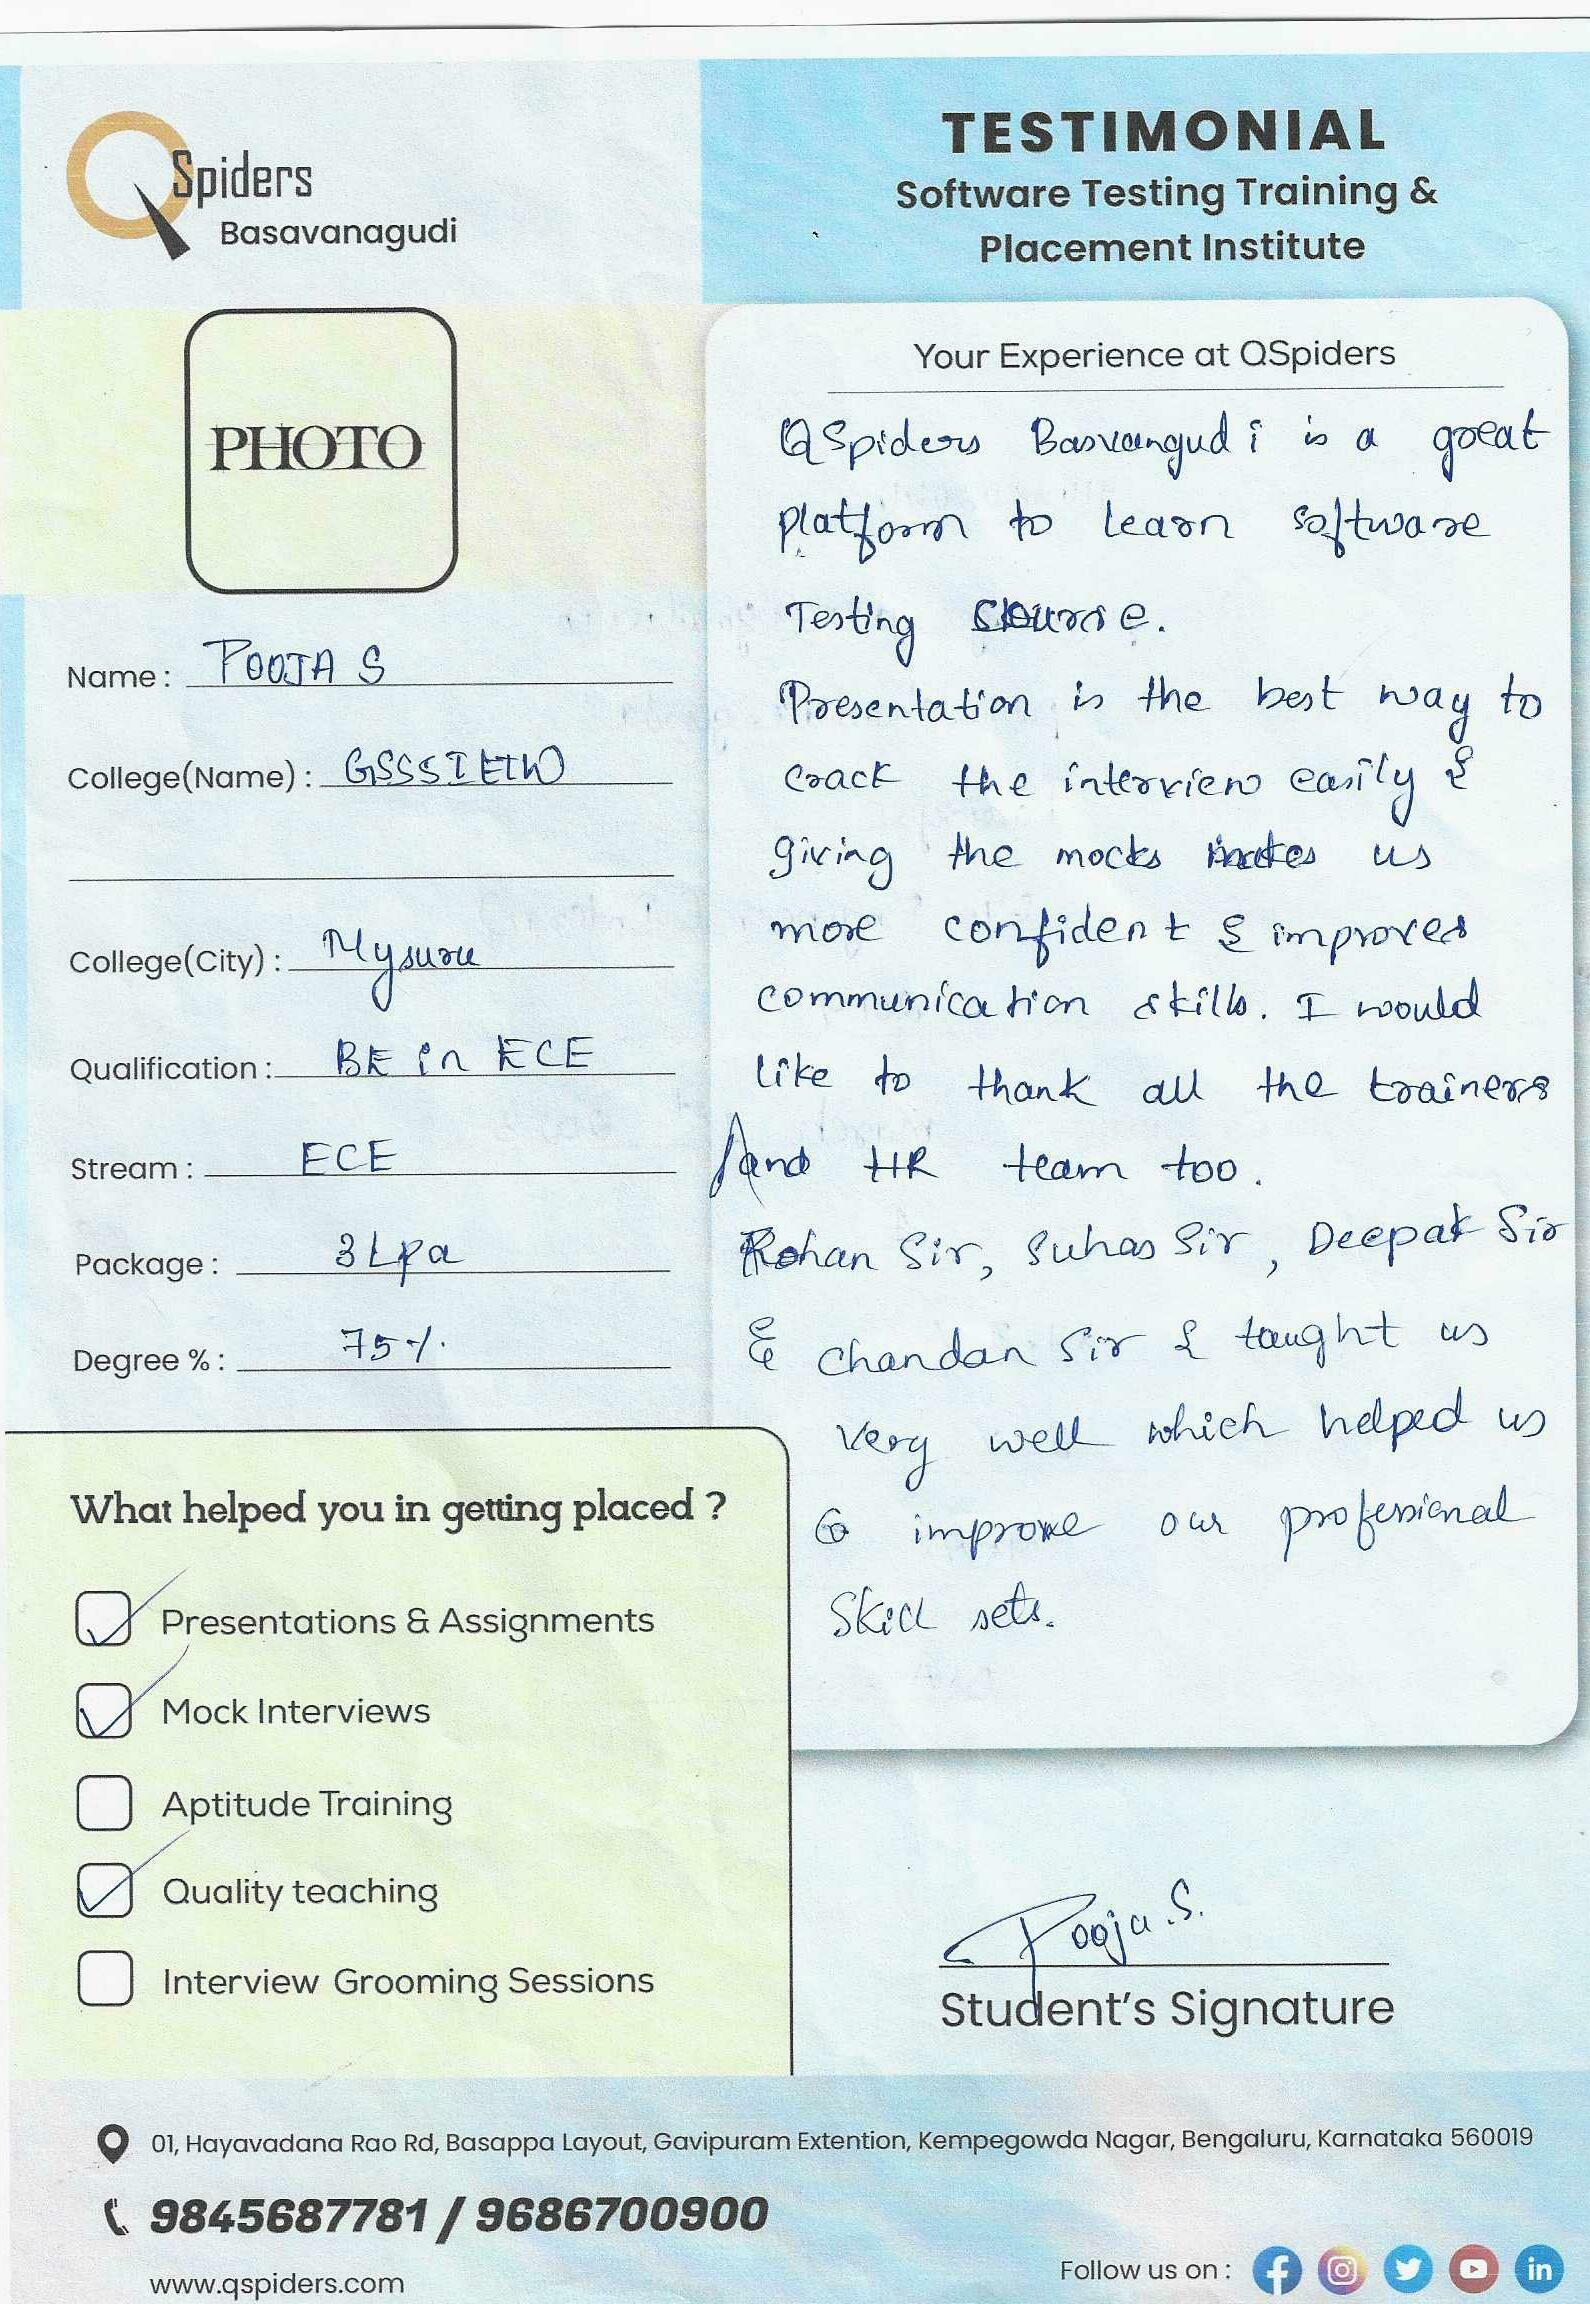 QSpiders
Basavanagudi
TESTIMONIAL
Software Testing Training &
Placement Institute
PHOTO
Name : POOJA S
College(Name) : GSSSIETW
College(City) : Mysuru
Qualification : BE in ECE
Stream : ECE
Package : 3 Lpa
Degree % : 75%
Your Experience at QSpiders
QSpiders Basvangudi is a great
platform to learn software
Testing course.
Presentation is the best way to
crack the interview easily &
giving the mocks makes us
more confident & improves
communication skills. I would
like to thank all the trainers
and HR team too.
Rohan Sir, Suhas Sir, Deepak Sir
& Chandan Sir & taught us
very well which helped us
to improve our professional
skill sets.
What helped you in getting placed ?
Presentations & Assignments
Mock Interviews
Aptitude Training
Quality teaching
Interview Grooming Sessions
Pooja.S.
Student's Signature
01, Hayavadana Rao Rd, Basappa Layout, Gavipuram Extention, Kempegowda Nagar, Bengaluru, Karnataka 560019
9845687781 / 9686700900
www.qspiders.com
Follow us on :